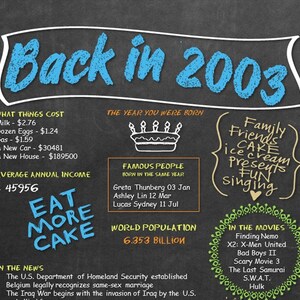 Back in 2003
HAT THINGS COST
Milk - $2.76
Dozen Eggs - $1.24
Gas - $1.59
A New Car - $30481
A New House - $189500
VERAGE ANNUAL INCOME
45956
EAT
MORE
CAKE
THE YEAR YOU WERE BORN
FAMOUS PEOPLE
BORN IN THE SAME YEAR!
Greta Thunberg 03 Jan
Ashley Lin 12 Mar
Lucas Sydney 11 Jul
WORLD POPULATION
6.353 BILLION
Family
Friends
CAKE
ice cream
presents
FUN
Singing
IN THE MOVIES
Finding Nemo
X2: X-Men United
Bad Boys II
Scary Movie 3
The Last Samurai
S.W.A.T.
Hulk
IN THE NEWS
The U.S. Department of Homeland Security established
Belgium legally recognizes same-sex marriage
The Iraq War begins with the invasion of Iraq by the U.S.